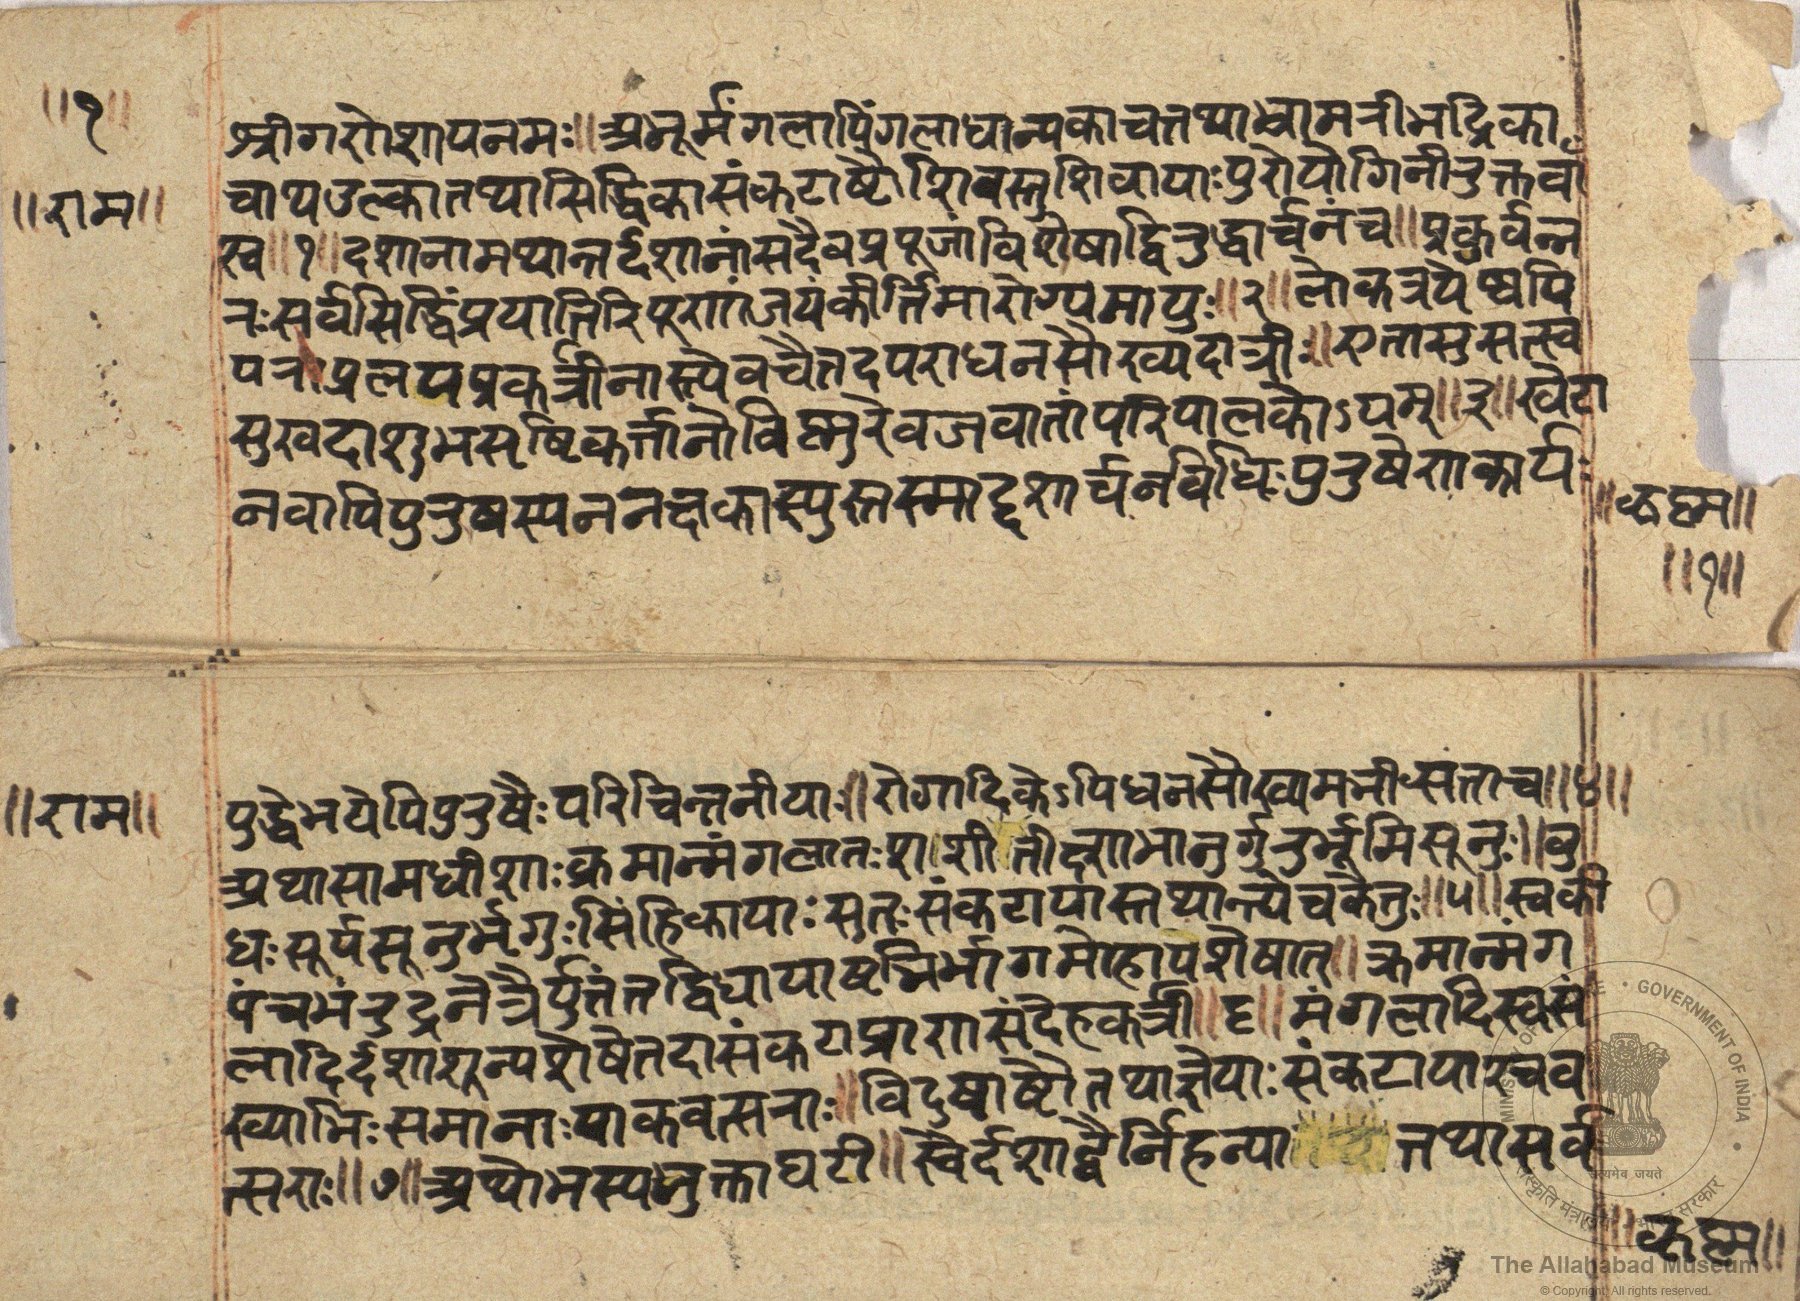 ॥१॥
श्रीगणेशायनमः॥अभूर्मंगलापिंगलाधान्यकाचतथाभ्रामरीभद्रिका
॥राम॥
चाथउल्कातथासिद्धिकासंकटाष्टौशिवस्तुशिवायाःपुरोयोगिनीरुक्तवां
स्व॥१॥दशानामथान्तर्दशानांसदैवप्रपूजांविशेषाद्विरुद्धार्चनंच॥प्रकुर्वन्न
नःसर्वसिद्धिंप्रयातिरिपूणांजयंकीर्त्तिमारोग्यमायुः॥२॥लोकत्रयेष्वपि
यत्राप्रलयप्रकर्त्रीनास्त्येवचैतदपराधनसौख्यदात्री॥एतासुसत्स्व
सुखदाशुभसृष्टिकर्त्तानोविष्णुरेवजवातांपरिपालकोऽयम्॥३॥खेटा
नवापिपुरुषस्य
स्मादृशार्चनविधिःपुरुषेणकार्यः
॥कृष्ण॥
॥१॥
॥राम॥
युद्धेभयेपिपुरुषैःपरिचिन्तनीयाः॥रोगादिकेऽपिधनसौख्यमभीप्सताच॥४॥
अथासामधीशाःक्रमान्मंगलातःशशीतीक्ष्णभानुर्गुरुर्भूमिसूनुः॥बु
धःसूर्यसूनुर्भृगुःसिंहिकायाःसुतःसंकटायास्तथान्त्येचकेतुः॥५॥स्वकी
यंचभंरुद्रनेत्रैर्युतंतद्विधायाष्टभिर्भागमोहायशेषात्॥क्रमान्मंग
लादिर्दशाशून्यशेषेतदासंकटाप्राणसंदेहकर्त्री॥६॥मंगलादिस्वसं
ख्याभिःसमानाःपाकवत्सराः॥विदुषाष्टौतथाज्ञेयाःसंकटायाश्चव
त्सराः॥७॥अथोभस्यभुक्ताघटी॥स्वैर्दशाद्वैर्निहन्या तथासर्व
॥कृष्ण॥
MINISTRY OF CULTURE • GOVERNMENT OF INDIA •
सत्यमेव जयते
संस्कृति मंत्रालय • भारत सरकार
The Allahabad Museum
© Copyright. All rights reserved.